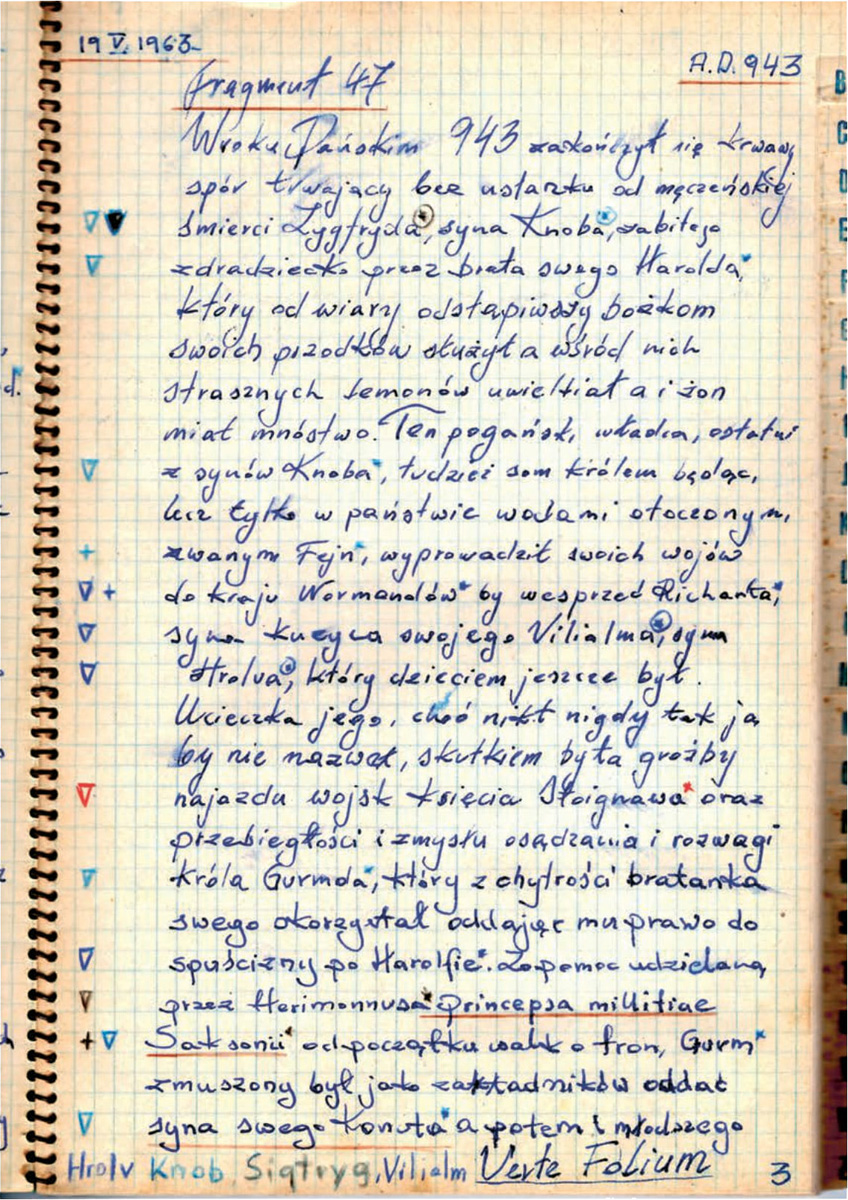 19 V. 1963
A.D. 943
Fragment 47
W roku Pańskim 943 zakończył się krwawy
spór trwający bez ustanku od męczeńskiej
śmierci Zygfryda*, syna Knoba*, zabitego
zdradziecko przez brata swego Harolda*,
który od wiary odstąpiwszy bożkom
swoich przodków służył a wśród nich
strasznych demonów uwielbiał a i żon
miał mnóstwo. Ten pogański władca, ostatni
z synów Knoba*, tudzież sam królem będąc,
lecz tylko w państwie wodami otoczonym,
zwanym Fejn*, wyprowadził swoich wojów
do kraju Normandów* by wesprzeć Richarta*,
syna kuzyna swojego Vilialma*, syna
Hrolva*, który dzieciem jeszcze był.
Ucieczka jego, choć nikt nigdy tak ją
by nie nazwał, skutkiem była groźby
najazdu wojsk księcia Stoignawa* oraz
przebiegłości i zmysłu osądzania i rozwagi
króla Gurmda*, który z chytrości bratanka
swego skorzystał oddając mu prawo do
spuścizny po Harolfie*. Za pomoc udzielaną
przez Herimonnusa* princepsa millitiae
Saksonii* od początku walk o tron, Gurm*
zmuszony był jako zakładników oddać
syna swego Konuta* a potem i młodszego
Hrolv Knob, Sigtryg, Vilialm Verte Folium 3
B
C
D
E
F
G
H